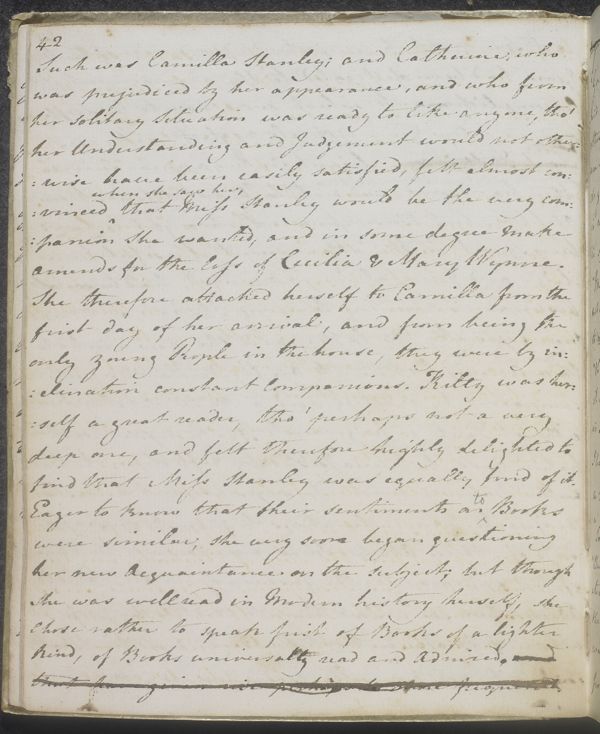 42
Such was Camilla Stanley; and Catherine, who
was prejudiced by her appearance, and who from
her solitary Situation was ready to like anyone, tho'
her Understanding and Judgement would not other:
:wise have been easily satisfied, felt almost con:
when she saw her,
:vinced that Miss Stanley would be the very com:
:panion she wanted, and in some degree make
amends for the loss of Cecilia & Mary Wynne.
She therefore attached herself to Camilla from the
first day of her arrival, and from being the
only young People in the house, they were by in:
:clination constant Companions. Kitty was her:
:self a great reader, tho' perhaps not a very
deep one, and felt therefore highly delighted to
find that Miss Stanley was equally fond of it.
Eager to know that their sentiments as to Books
were similar, she very soon began questioning
her new Acquaintance on the subject; but though
she was well read in Modern history herself, she
chose rather to speak first of Books of a lighter
kind, of Books universally read and Admired, and
that have given rise perhaps to more frequent